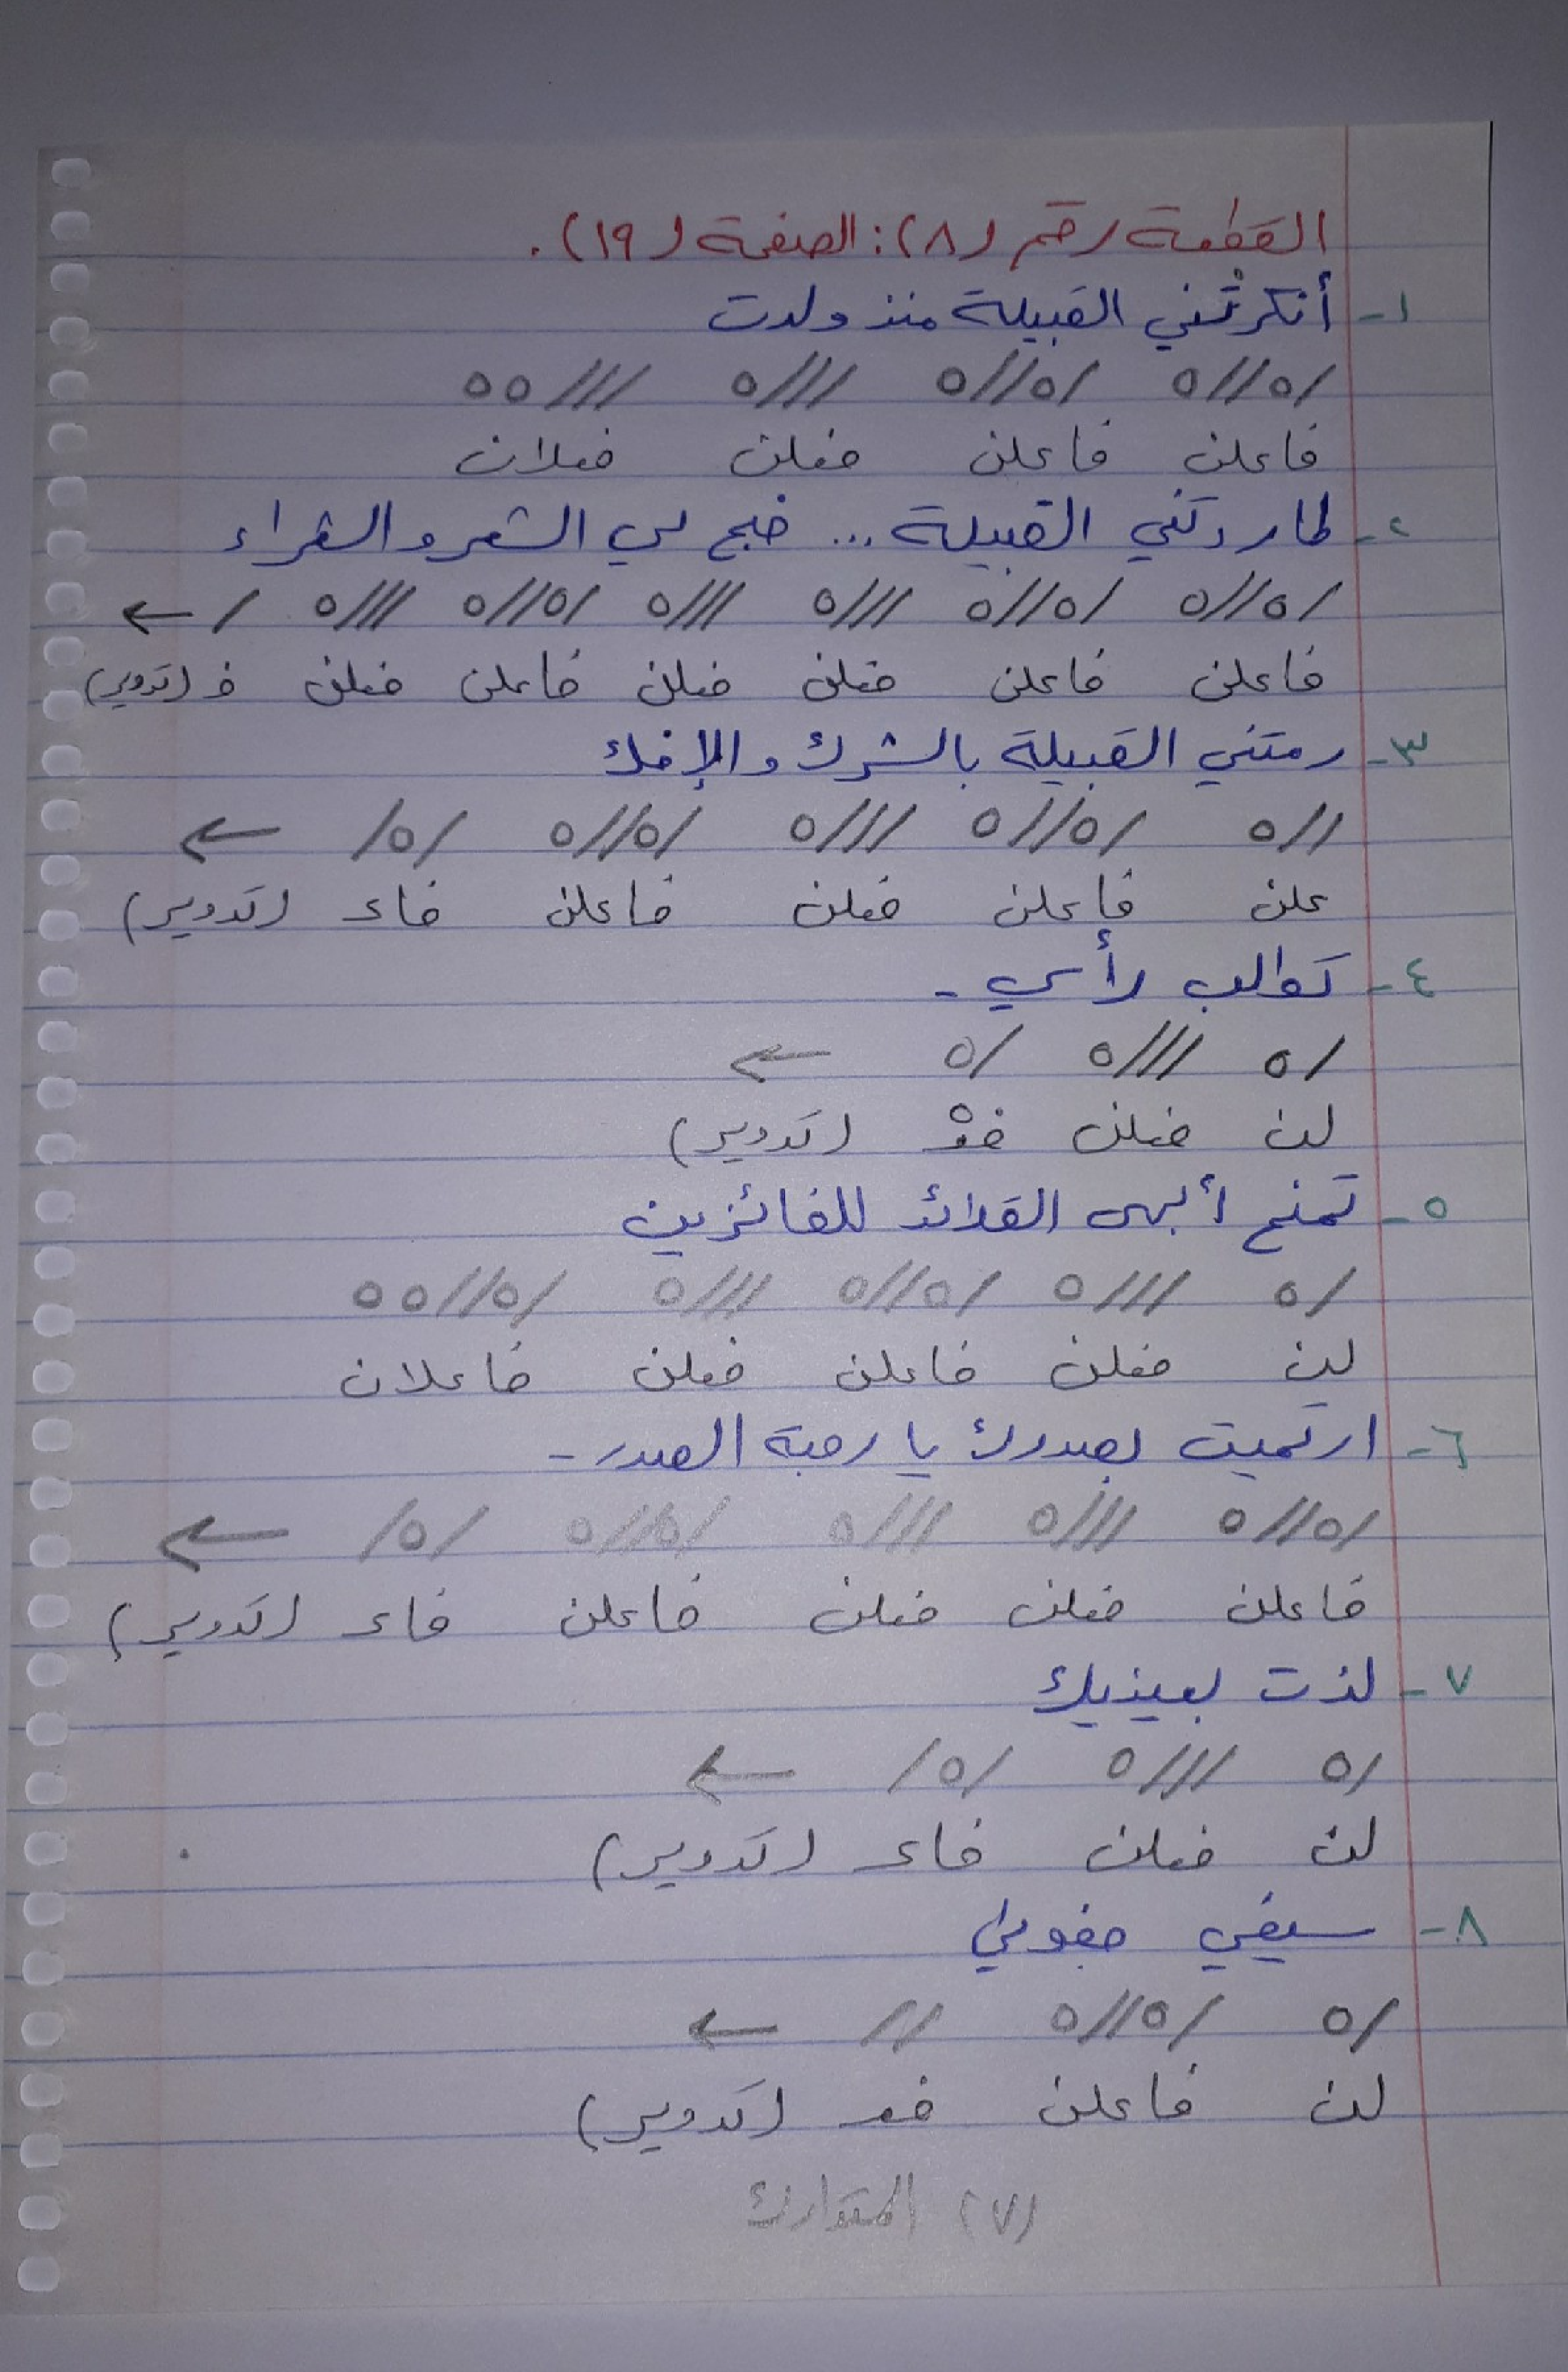 القطعة رقم (٨): الصفحة (١٩).
١- أنكرتْني القبيلة منذ ولدت
/ه//ه /ه//ه ///ه ///هه
فاعلن فاعلن فعلن فعلان
٢- طاردتني القبيلة... ضج لي الشعر والشعراء
/ه//ه /ه//ه ///ه ///ه /ه//ه ///ه / ←
فاعلن فاعلن فعلن فعلن فاعلن فعلن ف (تدوير)
٣- رمتني القبيلة بالشرك والإفك
//ه /ه//ه ///ه /ه//ه /ه/ ←
علن فاعلن فعلن فاعلن فاعـ (تدوير)
٤- تطالب رأسي -
/ه ///ه /ه ←
لن فعلن فعْ (تدوير)
٥- تمنح أبهى القلائد للفائزين
/ه ///ه /ه//ه ///ه /ه//هه
لن فعلن فاعلن فعلن فاعلان
٦- ارتميت بصدرك يا رحبة الصدر -
/ه//ه ///ه ///ه /ه//ه /ه/ ←
فاعلن فعلن فعلن فاعلن فاعـ (تدوير)
٧- لذت بعينيك
/ه ///ه /ه/ ←
لن فعلن فاعـ (تدوير)
٨- سيفي خفوطي
/ه /ه//ه // ←
لن فاعلن فعـ (تدوير)
(٧) المتدارك